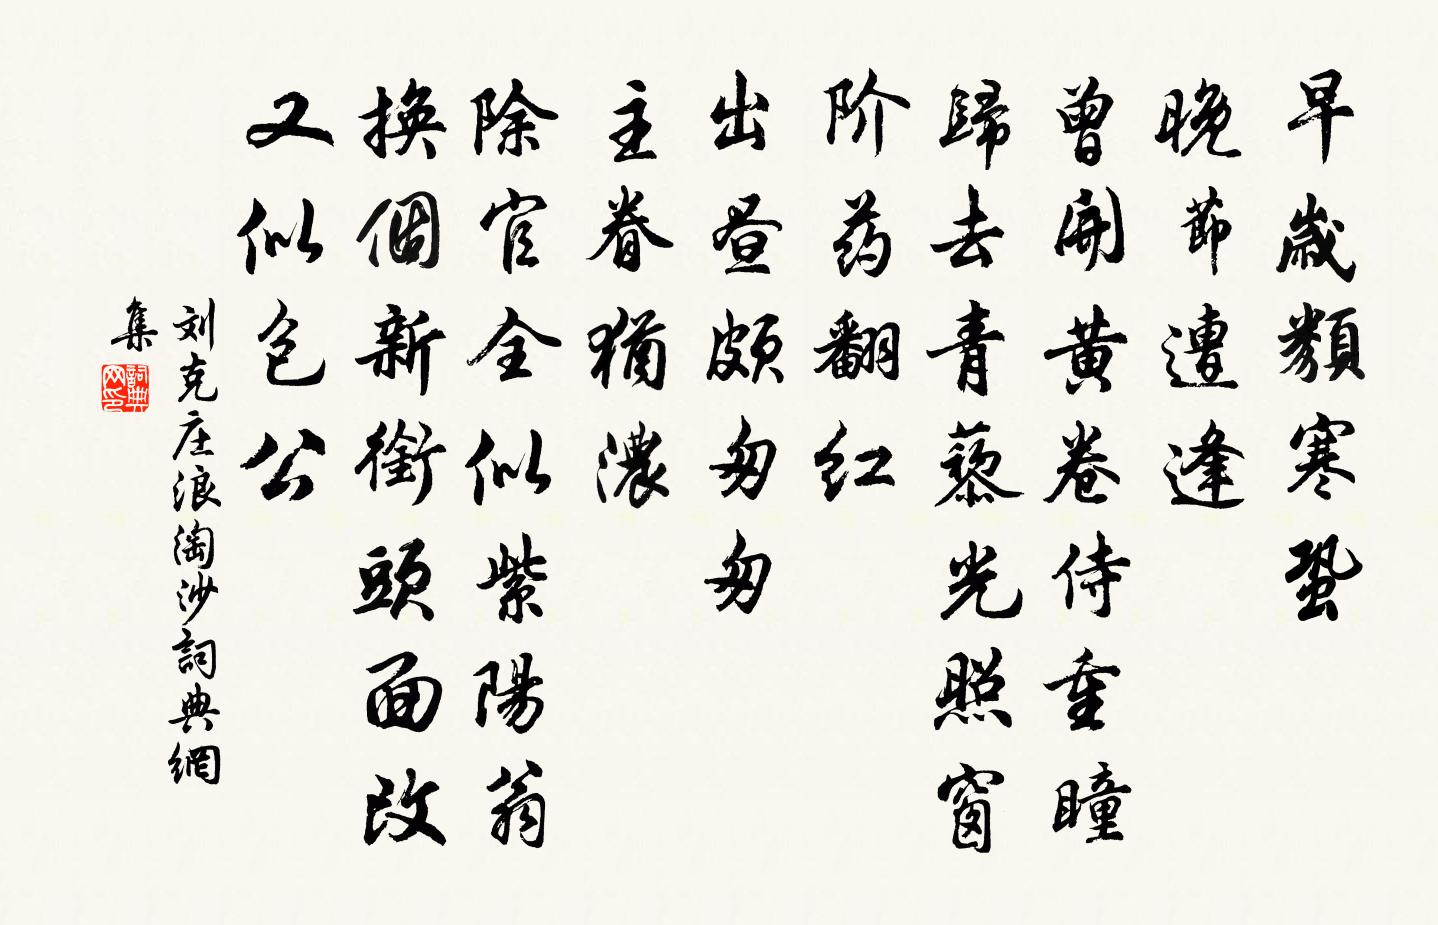 早歲類寒蛩
晚節遭逢
曾開黃卷侍重瞳
歸去青藜光照窗
阶药翻红
出昼颇匆匆
主眷猶濃
除官全似紫陽翁
換個新銜頭面改
又似包公
刘克庄浪淘沙詞典網
集
詞典
网印